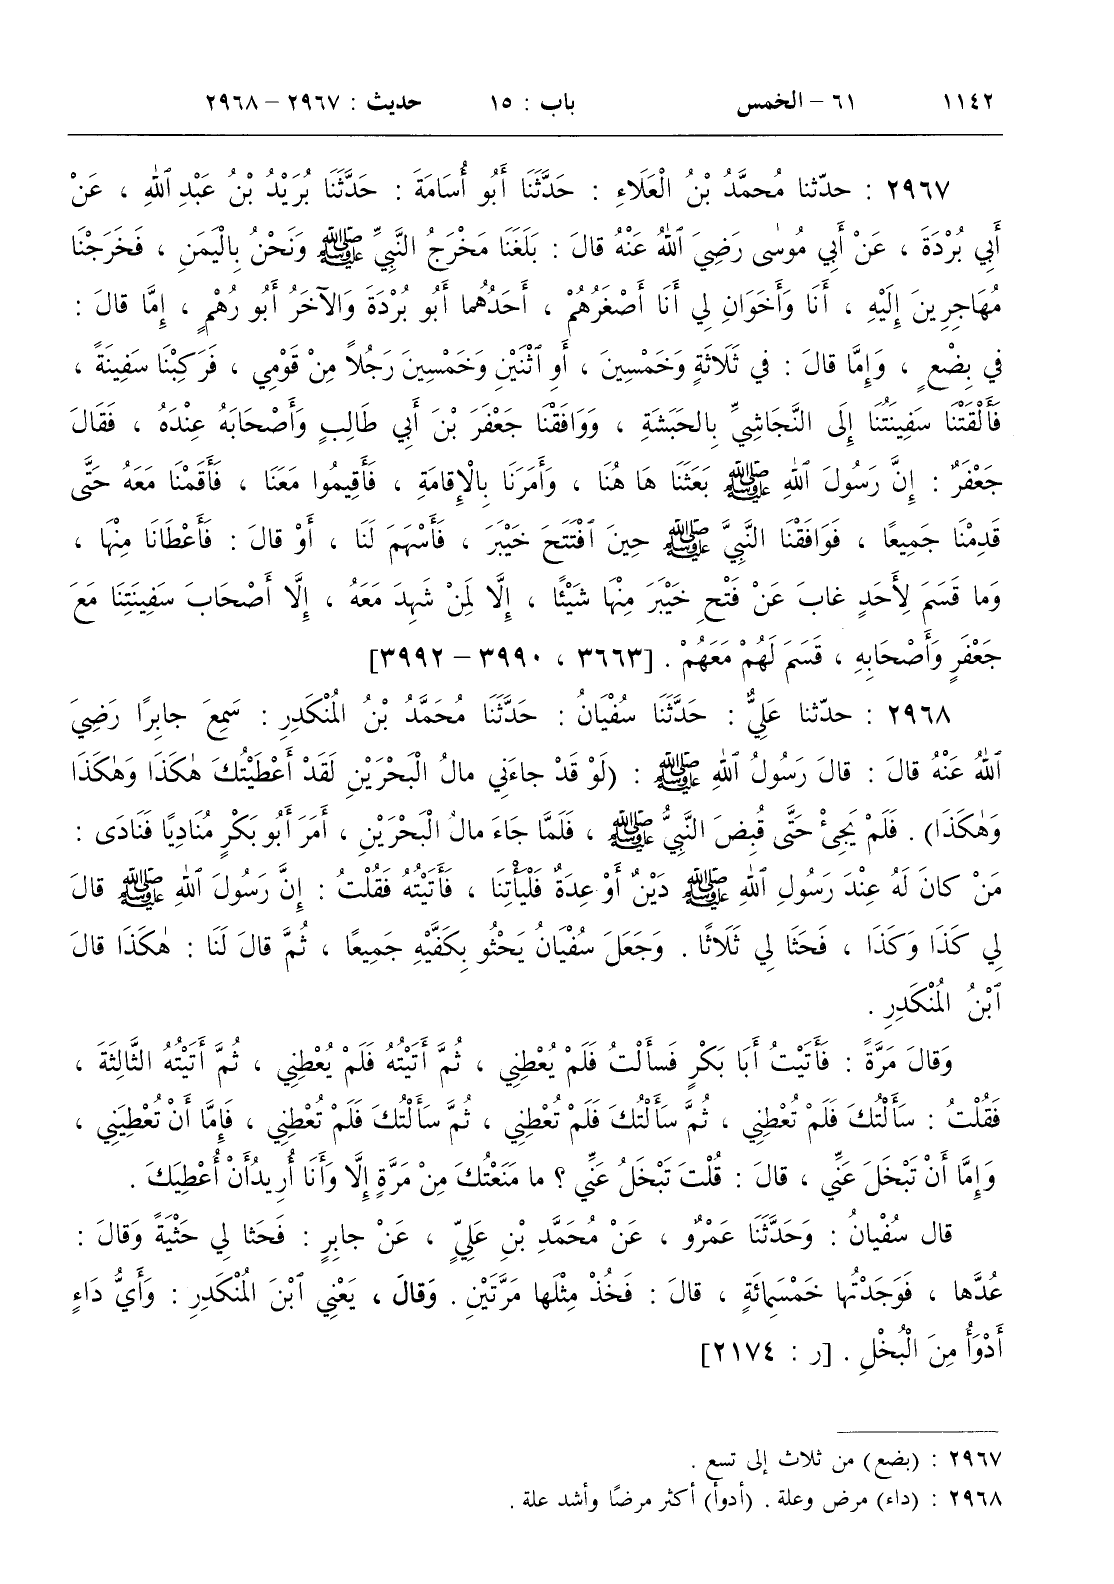 ١١٤٢ ٦١ – الخمس باب : ١٥ حديث : ٢٩٦٧ – ٢٩٦٨
٢٩٦٧ : حدّثنا مُحمَّدُ بْنُ الْعَلَاءِ : حَدَّثَنَا أَبُو أُسَامَةَ : حَدَّثَنَا بُرَيْدُ بْنُ عَبْدِ ٱللهِ ، عَنْ
أَبِي بُرْدَةَ ، عَنْ أَبِي مُوسٰى رَضِيَ ٱللهُ عَنْهُ قالَ : بَلَغَنَا مَخْرَجُ النَّبِيِّ ﷺ وَنَحْنُ بِالْيَمَنِ ، فَخَرَجْنَا
مُهَاجِرِينَ إِلَيْهِ ، أَنَا وَأَخَوَانِ لِي أَنَا أَصْغَرُهُمْ ، أَحَدُهُما أَبُو بُرْدَةَ وَالآخَرُ أَبُو رُهْمٍ ، إِمَّا قالَ :
في بِضْعٍ ، وَإِمَّا قالَ : في ثَلَاثَةٍ وَخَمْسِينَ ، أَوِ ٱثْنَيْنِ وَخَمْسِينَ رَجُلاً مِنْ قَوْمِي ، فَرَكِبْنَا سَفِينَةً ،
فَأَلْقَتْنَا سَفِينَتُنَا إِلَى النَّجَاشِيِّ بِالحَبَشَةِ ، وَوَافَقْنَا جَعْفَرَ بْنَ أَبِي طَالِبٍ وَأَصْحَابَهُ عِنْدَهُ ، فَقَالَ
جَعْفَرٌ : إِنَّ رَسُولَ ٱللهِ ﷺ بَعَثَنَا هَا هُنَا ، وَأَمَرَنَا بِالْإِقامَةِ ، فَأَقِيمُوا مَعَنَا ، فَأَقَمْنَا مَعَهُ حَتَّى
قَدِمْنَا جَمِيعًا ، فَوَافَقْنَا النَّبِيَّ ﷺ حِينَ ٱفْتَتَحَ خَيْبَرَ ، فَأَسْهَمَ لَنَا ، أَوْ قالَ : فَأَعْطَانَا مِنْهَا ،
وَما قَسَمَ لِأَحَدٍ غابَ عَنْ فَتْحِ خَيْبَرَ مِنْهَا شَيْئًا ، إِلَّا لِمَنْ شَهِدَ مَعَهُ ، إِلَّا أَصْحَابَ سَفِينَتِنَا مَعَ
جَعْفَرٍ وَأَصْحَابِهِ ، قَسَمَ لَهُمْ مَعَهُمْ . [٣٦٦٣ ، ٣٩٩٠ – ٣٩٩٢]
٢٩٦٨ : حدّثنا عَلِيٌّ : حَدَّثَنَا سُفْيَانُ : حَدَّثَنَا مُحَمَّدُ بْنُ المُنْكَدِرِ : سَمِعَ جابِرًا رَضِيَ
ٱللهُ عَنْهُ قالَ : قالَ رَسُولُ ٱللهِ ﷺ : (لَوْ قَدْ جاءَنِي مالُ الْبَحْرَيْنِ لَقَدْ أَعْطَيْتُكَ هٰكَذَا وَهٰكَذَا
وَهٰكَذَا) . فَلَمْ يَجِئْ حَتَّى قُبِضَ النَّبِيُّ ﷺ ، فَلَمَّا جَاءَ مالُ الْبَحْرَيْنِ ، أَمَرَ أَبُو بَكْرٍ مُنَادِيًا فَنَادَى :
مَنْ كانَ لَهُ عِنْدَ رَسُولِ ٱللهِ ﷺ دَيْنٌ أَوْ عِدَةٌ فَلْيَأْتِنَا ، فَأَتَيْتُهُ فَقُلْتُ : إِنَّ رَسُولَ ٱللهِ ﷺ قالَ
لِي كَذَا وَكَذَا ، فَحَثَا لِي ثَلَاثًا . وَجَعَلَ سُفْيَانُ يَحْثُو بِكَفَّيْهِ جَمِيعًا ، ثُمَّ قالَ لَنَا : هٰكَذَا قالَ
ٱبْنُ المُنْكَدِرِ .
وَقالَ مَرَّةً : فَأَتَيْتُ أَبَا بَكْرٍ فَسأَلْتُ فَلَمْ يُعْطِنِي ، ثُمَّ أَتَيْتُهُ فَلَمْ يُعْطِنِي ، ثُمَّ أَتَيْتُهُ الثَّالِثَةَ ،
فَقُلْتُ : سَأَلْتُكَ فَلَمْ تُعْطِنِي ، ثُمَّ سَأَلْتُكَ فَلَمْ تُعْطِنِي ، ثُمَّ سَأَلْتُكَ فَلَمْ تُعْطِنِي ، فَإِمَّا أَنْ تُعْطِيَنِي ،
وَإِمَّا أَنْ تَبْخَلَ عَنِّي ، قالَ : قُلْتَ تَبْخَلُ عَنِّي ؟ ما مَنَعْتُكَ مِنْ مَرَّةٍ إِلَّا وَأَنَا أُرِيدُ أَنْ أُعْطِيَكَ .
قال سُفْيانُ : وَحَدَّثَنَا عَمْرٌو ، عَنْ مُحَمَّدِ بْنِ عَلِيٍّ ، عَنْ جابِرٍ : فَحَثا لِي حَثْيَةً وَقالَ :
عُدَّها ، فَوَجَدْتُها خَمْسَمِائَةٍ ، قالَ : فَخُذْ مِثْلَها مَرَّتَيْنِ . وَقالَ ، يَعْنِي ٱبْنَ المُنْكَدِرِ : وَأَيُّ دَاءٍ
أَدْوَأُ مِنَ الْبُخْلِ . [ر : ٢١٧٤]
٢٩٦٧ : (بضع) من ثلاث إلى تسع .
٢٩٦٨ : (داء) مرض وعلة . (أدوأ) أكثر مرضًا وأشد علة .